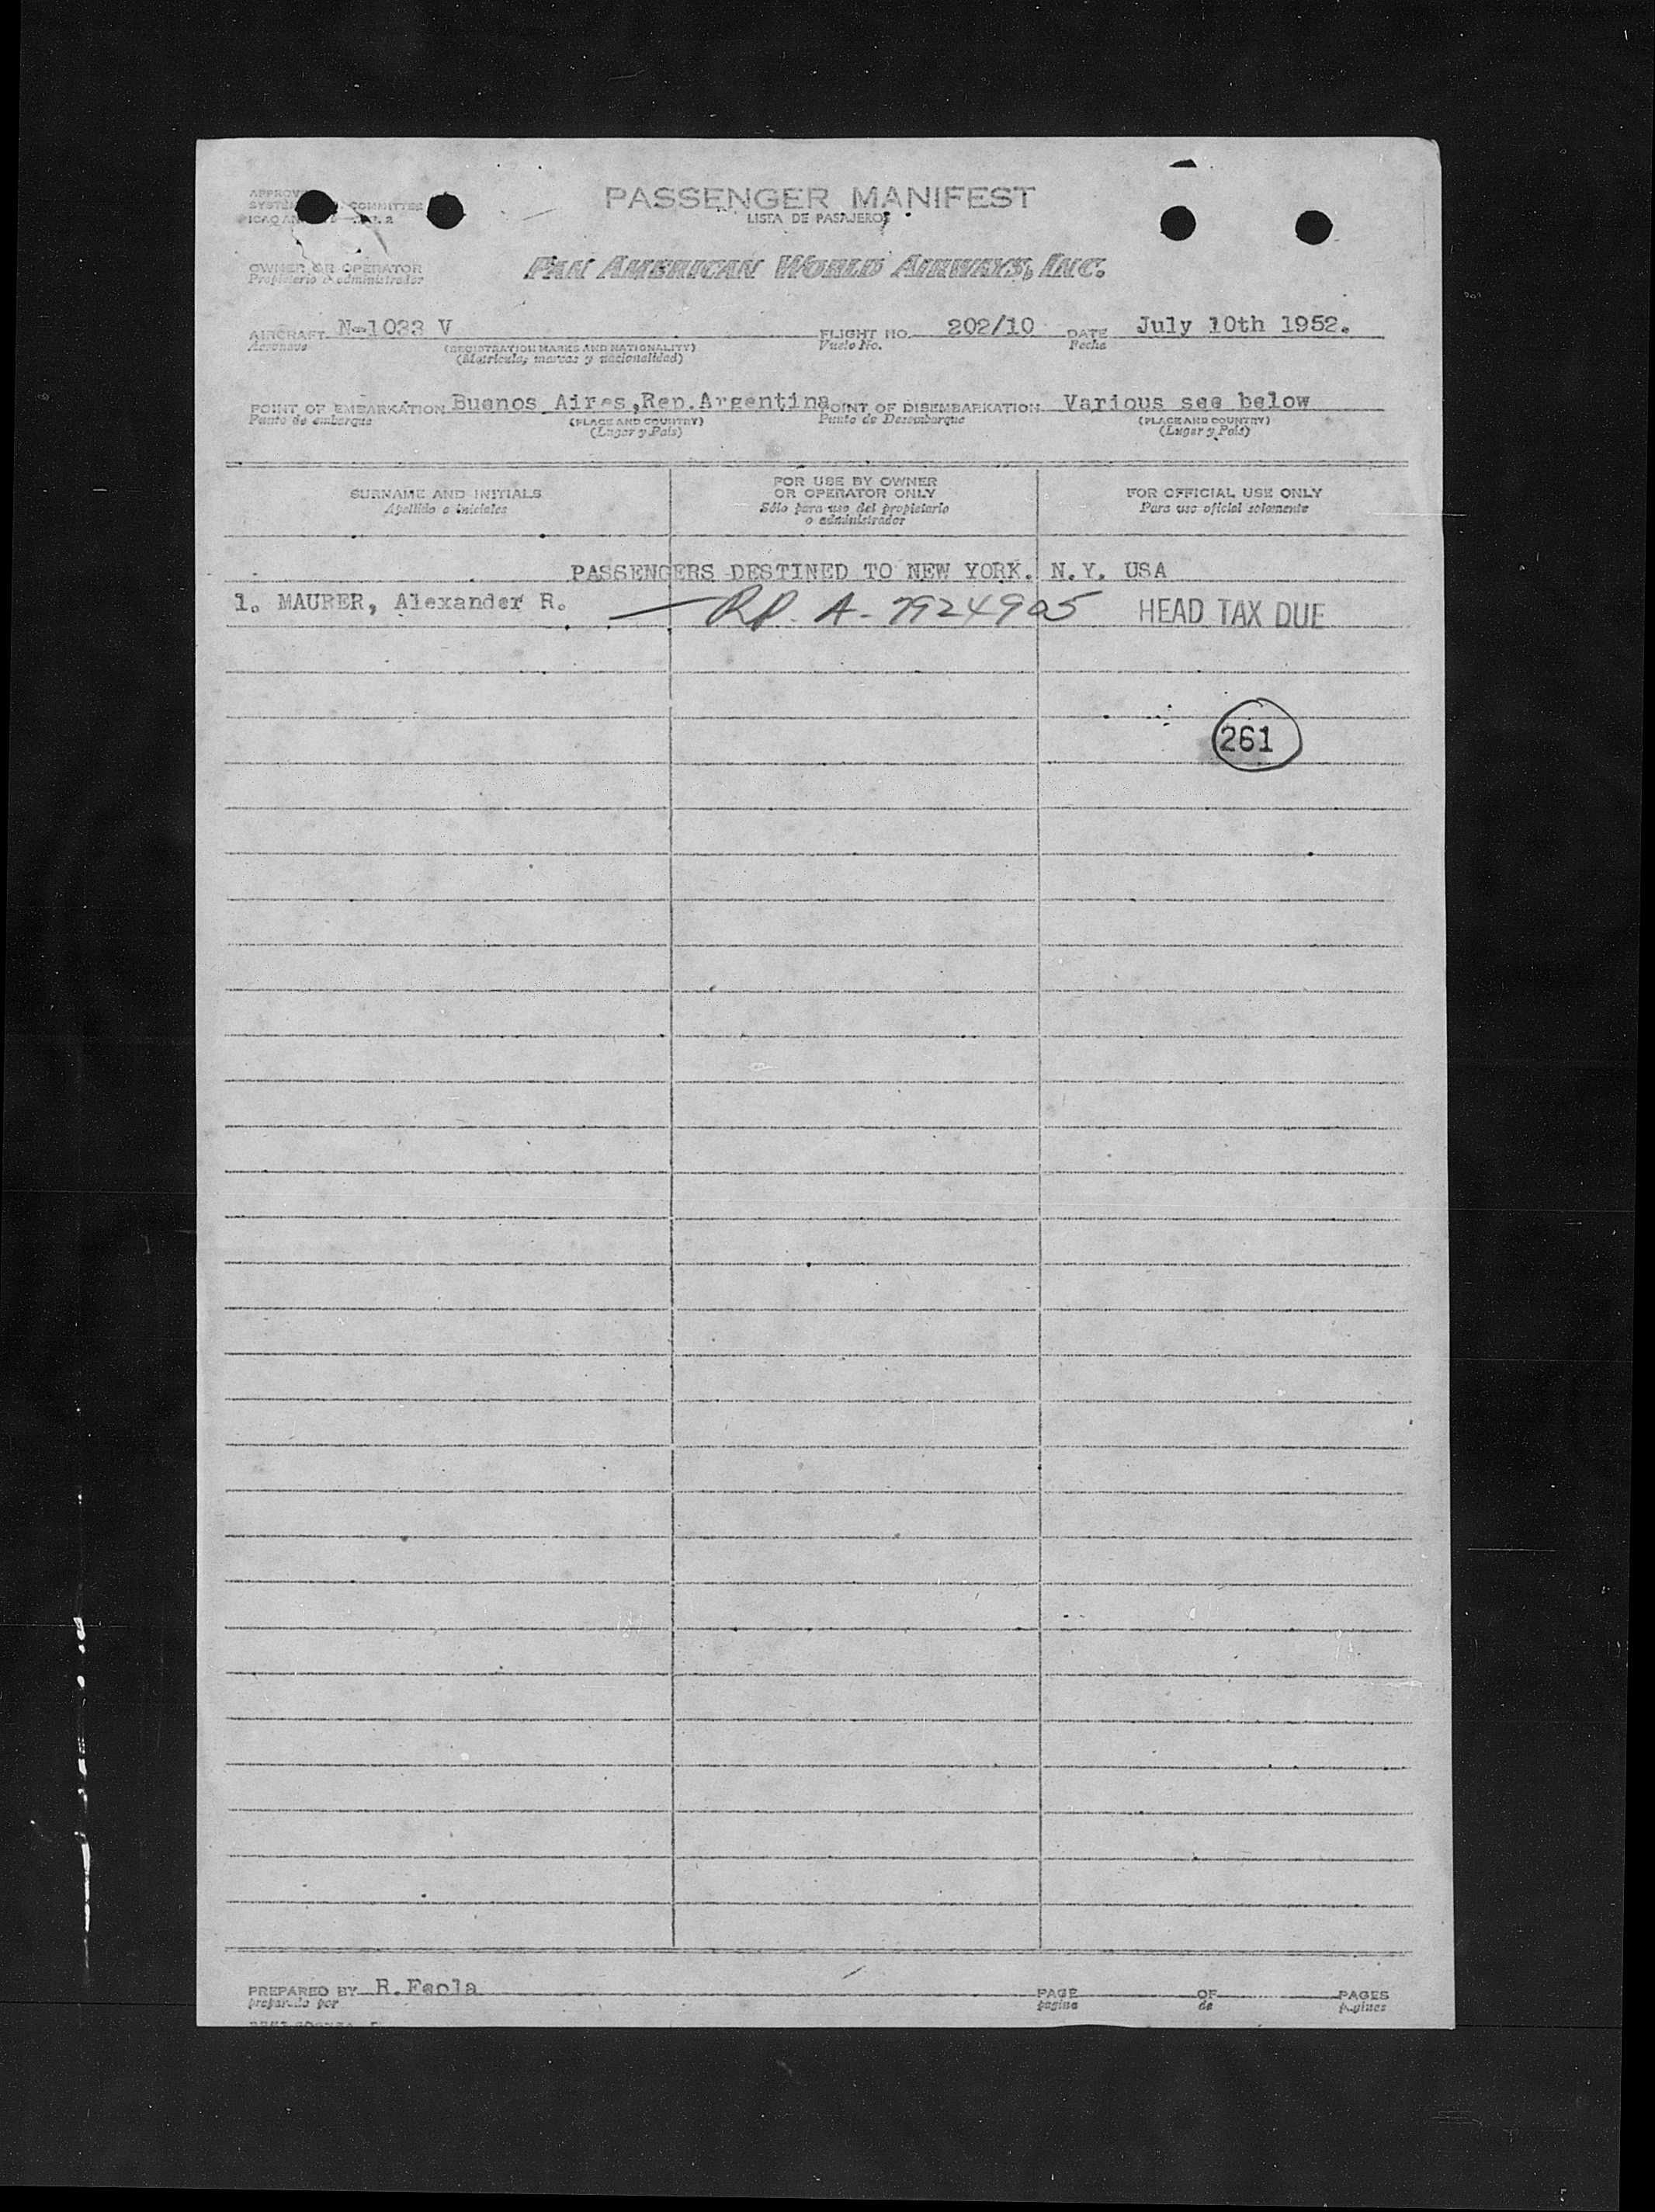 PASSENGER MANIFEST
LISTA DE PASAJEROS
COMMITTEE
OWNER OR OPERATOR
Propietario o administrador
PAN AMERICAN WORLD AIRWAYS, INC.
AIRCRAFT N-1033 V FLIGHT NO. 202/10 DATE July 10th 1952.
Aeronave (REGISTRATION MARKS AND NATIONALITY) Vuelo No. Fecha
(Matrícula, marcas y nacionalidad)
POINT OF EMBARKATION Buenos Aires,Rep.Argentina POINT OF DISEMBARKATION Various see below
Punto de embarque (PLACE AND COUNTRY) Punto de Desembarque (PLACE AND COUNTRY)
(Lugar y País) (Lugar y País)
SURNAME AND INITIALS
Apellido e iniciales
FOR USE BY OWNER
OR OPERATOR ONLY
Sólo para uso del propietario
o administrador
FOR OFFICIAL USE ONLY
Para uso oficial solamente
PASSENGERS DESTINED TO NEW YORK. N.Y. USA
1. MAURER, Alexander R. — RP. A-7924905 HEAD TAX DUE
261
PREPARED BY R.Faola PAGE OF PAGES
preparado por pagina de paginas